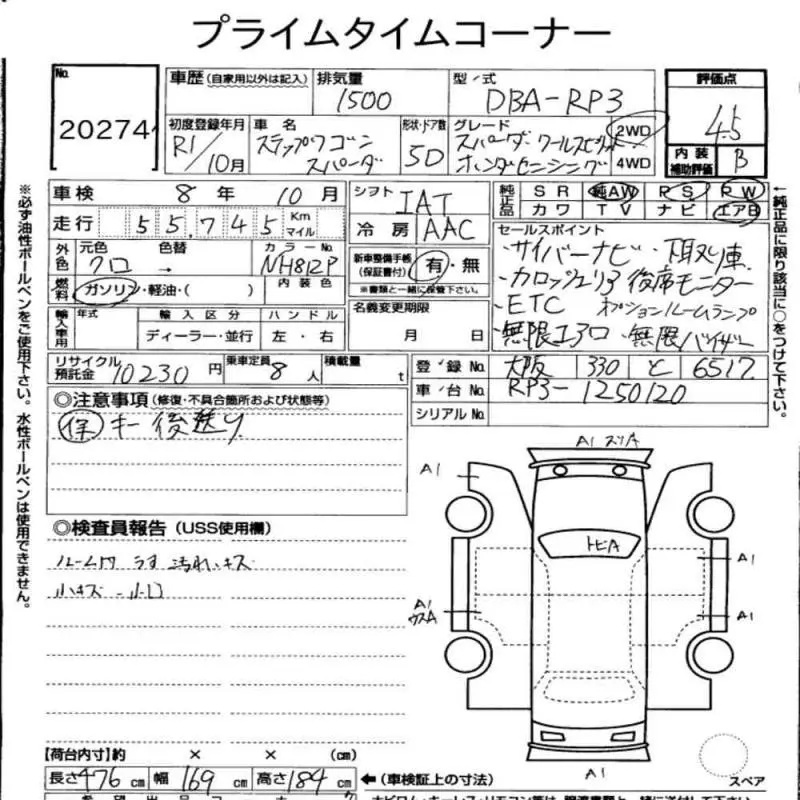 プライムタイムコーナー
No.
20274
車歴 (自家用以外は記入)
排気量
1500
型/式
DBA-RP3
評価点
4.5
初度登録年月
R1/10月
車名
ステップワゴン
スパーダ
形状・ドア数
5D
グレード
スパーダ クールスピリット
ホンダセンシング
2WD
4WD
内装
補助評価
B
車検 8年 10月
シフト
IAT
純正品
SR 純AW PS PW
カワ TV ナビ エアB
走行 55,745 Km
マイル
冷房
AAC
セールスポイント
・サイバーナビ ・下取り車
・カロッツェリア後席モニター
・ETC オプションルームランプ
・無限エアロ 無限バイザー
外色
元色
クロ
色替
→
カラーNo.
NH812P
内装色
新車整備手帳
(保証書付)
有・無
※書類と一緒に保管下さい。
燃料
ガソリン・軽油・( )
名義変更期限
月 日
輸入車用
年式
輸入区分
ハンドル
ディーラー・並行
左・右
リサイクル
預託金
10230円
乗車定員
8人
積載量
t
登録No.
大阪 330 と 6517
車台No.
RP3-1250120
シリアルNo.
◎注意事項(修復・不具合箇所および状態等)
保 キー後送り
◎検査員報告(USS使用欄)
ルーム内 うす汚れ、キズ
小キズ・小凹
A1 スリA
A1
トビA
A1
A1
ウスA
A1
A1
A1
スペア
【荷台内寸】約 × × (cm)
長さ476cm 幅169cm 高さ184cm
←(車検証上の寸法)
※必ず油性ボールペンをご使用下さい。水性ボールペンは使用できません。
←純正品に限り該当に○をつけて下さい。